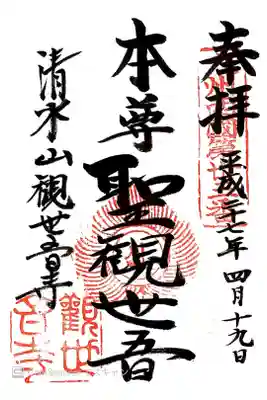 奉拝
平成二十七年四月十九日
本尊
聖観世音
清水山観世音寺
観世音寺